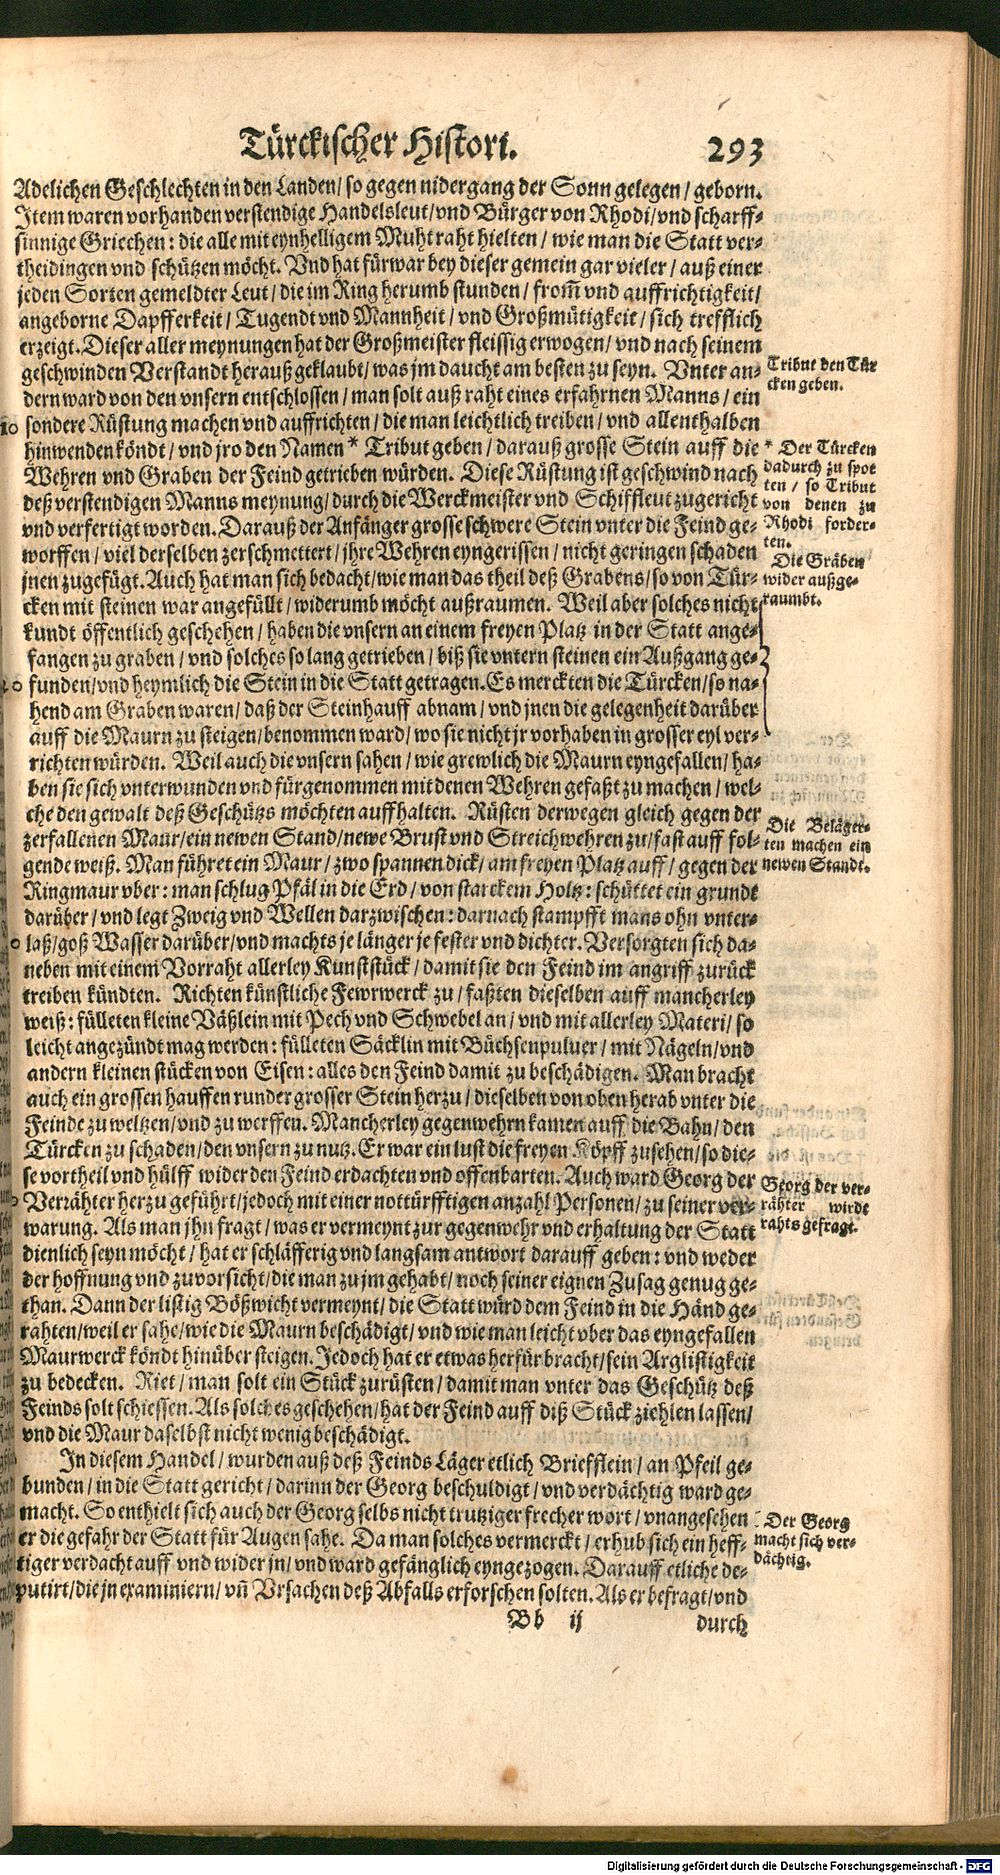 Türckischer Histori. 293
Adelichen Geschlechten in den Landen/ so gegen nidergang der Sonn gelegen/ geborn.
Item waren vorhanden verstendige Handelsleut/ vnd Bürger von Rhodi/ vnd scharff-
sinnige Griechen: die alle mit eynhelligem Muht raht hielten/ wie man die Statt ver-
theidingen vnd schützen möcht. Vnd hat fürwar bey dieser gemein gar vieler/ auß einer
jeden Sorten gemeldter Leut/ die im Ring herumb stunden/ from̃ vnd auffrichtigkeit/
angeborne Dapfferkeit/ Tugendt vnd Mannheit/ vnd Großmütigkeit/ sich trefflich
erzeigt. Dieser aller meynungen hat der Großmeister fleissig erwogen/ vnd nach seinem
geschwinden Verstandt herauß geklaubt/ was jm daucht am besten zu seyn. Vnter an-
dern ward von den vnsern entschlossen/ man solt auß raht eines erfahrnen Manns/ ein
10 sondere Rüstung machen vnd auffrichten/ die man leichtlich treiben/ vnd allenthalben
hinwenden köndt/ vnd jro den Namen * Tribut geben/ darauß grosse Stein auff die
Wehren vnd Graben der Feind getrieben würden. Diese Rüstung ist geschwind nach
deß verstendigen Manns meynung/ durch die Werckmeister vnd Schiffleut zugericht
vnd verfertigt worden. Darauß der Anfänger grosse schwere Stein vnter die Feind ge-
worffen/ viel derselben zerschmettert/ ihre Wehren eyngerissen/ nicht geringen schaden
jnen zugefügt. Auch hat man sich bedacht/ wie man das theil deß Grabens/ so von Tür-
cken mit steinen war angefüllt/ widerumb möcht außraumen. Weil aber solches nicht
kundt öffentlich geschehen/ haben die vnsern an einem freyen Platz in der Statt ange-
fangen zu graben/ vnd solches so lang getrieben/ biß sie vntern steinen ein Außgang ge-
funden/ vnd heymlich die Stein in die Statt getragen. Es merckten die Türcken/ so na-
hend am Graben waren/ daß der Steinhauff abnam/ vnd jnen die gelegenheit darüber
auff die Maurn zu steigen/ benommen ward/ wo sie nicht jr vorhaben in grosser eyl ver-
richten würden. Weil auch die vnsern sahen/ wie grewlich die Maurn eyngefallen/ ha-
ben sie sich vnterwunden vnd fürgenommen mit denen Wehren gefaßt zu machen/ wel-
che den gewalt deß Geschützs möchten auffhalten. Rüsten derwegen gleich gegen der
zerfallenen Maur/ ein newen Stand/ newe Brust vnd Streichwehren zu/ fast auff fol-
gende weiß. Man führet ein Maur/ zwo spannen dick/ am freyen Platz auff/ gegen der
Ringmaur vber: man schlug Pfäl in die Erd/ von starckem Holtz: schüttet ein grundt
darüber/ vnd legt Zweig vnd Wellen darzwischen: darnach stampfft mans ohn vnter-
laß/ goß Wasser darüber/ vnd machts je länger je fester vnd dichter. Versorgten sich da-
neben mit einem Vorraht allerley Kunststück/ damit sie den Feind im angriff zurück
treiben kündten. Richten künstliche Fewrwerck zu/ faßten dieselben auff mancherley
weiß: fülleten kleine Väßlein mit Pech vnd Schwebel an/ vnd mit allerley Materi/ so
leicht angezündt mag werden: fülleten Säcklin mit Büchsenpuluer/ mit Nägeln/ vnd
andern kleinen stücken von Eisen: alles den Feind damit zu beschädigen. Man bracht
auch ein grossen hauffen runder grosser Stein herzu/ dieselben von oben herab vnter die
Feinde zu weltzen/ vnd zu werffen. Mancherley gegenwehrn kamen auff die Bahn/ den
Türcken zu schaden/ den vnsern zu nutz. Er war ein lust die freyen Köpff zusehen/ so die-
se vortheil vnd hülff wider den Feind erdachten vnd offenbarten. Auch ward Georg der
Verrähter herzu geführt/ jedoch mit einer nottürfftigen anzahl Personen/ zu seiner ver-
warung. Als man jhn fragt/ was er vermeynt zur gegenwehr vnd erhaltung der Statt
dienlich seyn möcht/ hat er schläfferig vnd langsam antwort darauff geben: vnd weder
der hoffnung vnd zuvorsicht/ die man zu jm gehabt/ noch seiner eignen Zusag genug ge-
than. Dann der listig Bößwicht vermeynt/ die Statt würd dem Feind in die Händ ge-
rahten/ weil er sahe/ wie die Maurn beschädigt/ vnd wie man leicht vber das eyngefallen
Maurwerck köndt hinüber steigen. Jedoch hat er etwas herfür bracht/ sein Arglistigkeit
zu bedecken. Riet/ man solt ein Stück zurüsten/ damit man vnter das Geschütz deß
Feinds solt schiessen. Als solches geschehen/ hat der Feind auff diß Stück ziehlen lassen/
vnd die Maur daselbst nicht wenig beschädigt.
In diesem Handel/ wurden auß deß Feinds Läger etlich Briefflein/ an Pfeil ge-
bunden/ in die Statt gericht/ darinn der Georg beschuldigt/ vnd verdächtig ward ge-
macht. So enthielt sich auch der Georg selbs nicht trutziger frecher wort/ vnangesehen
er die gefahr der Statt für Augen sahe. Da man solches vermerckt/ erhub sich ein heff-
tiger verdacht auff vnd wider jn/ vnd ward gefänglich eyngezogen. Darauff etliche de-
putirt/ die jn examiniern/ vñ Vrsachen deß Abfalls erforschen solten. Als er befragt/ vnd
Bb ij durch
Tribut den Tür
cken geben.
* Der Türcken
dadurch zu spot
ten/ so Tribut
von denen zu
Rhodi forder-
ten.
Die Gräben
wider außge-
raumbt.
Die Beläger-
ten machen ein
newen Standt.
Georg der ver-
rähter wirdt
rahts gefragt.
Der Georg
macht sich ver-
dächtig.
Digitalisierung gefördert durch die Deutsche Forschungsgemeinschaft - DFG